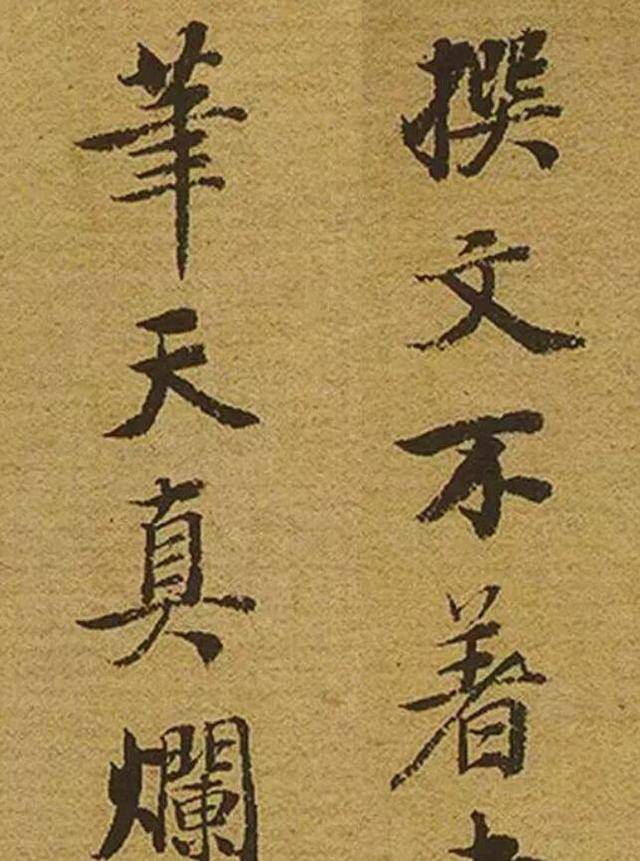 撰文不着
筆天真爛